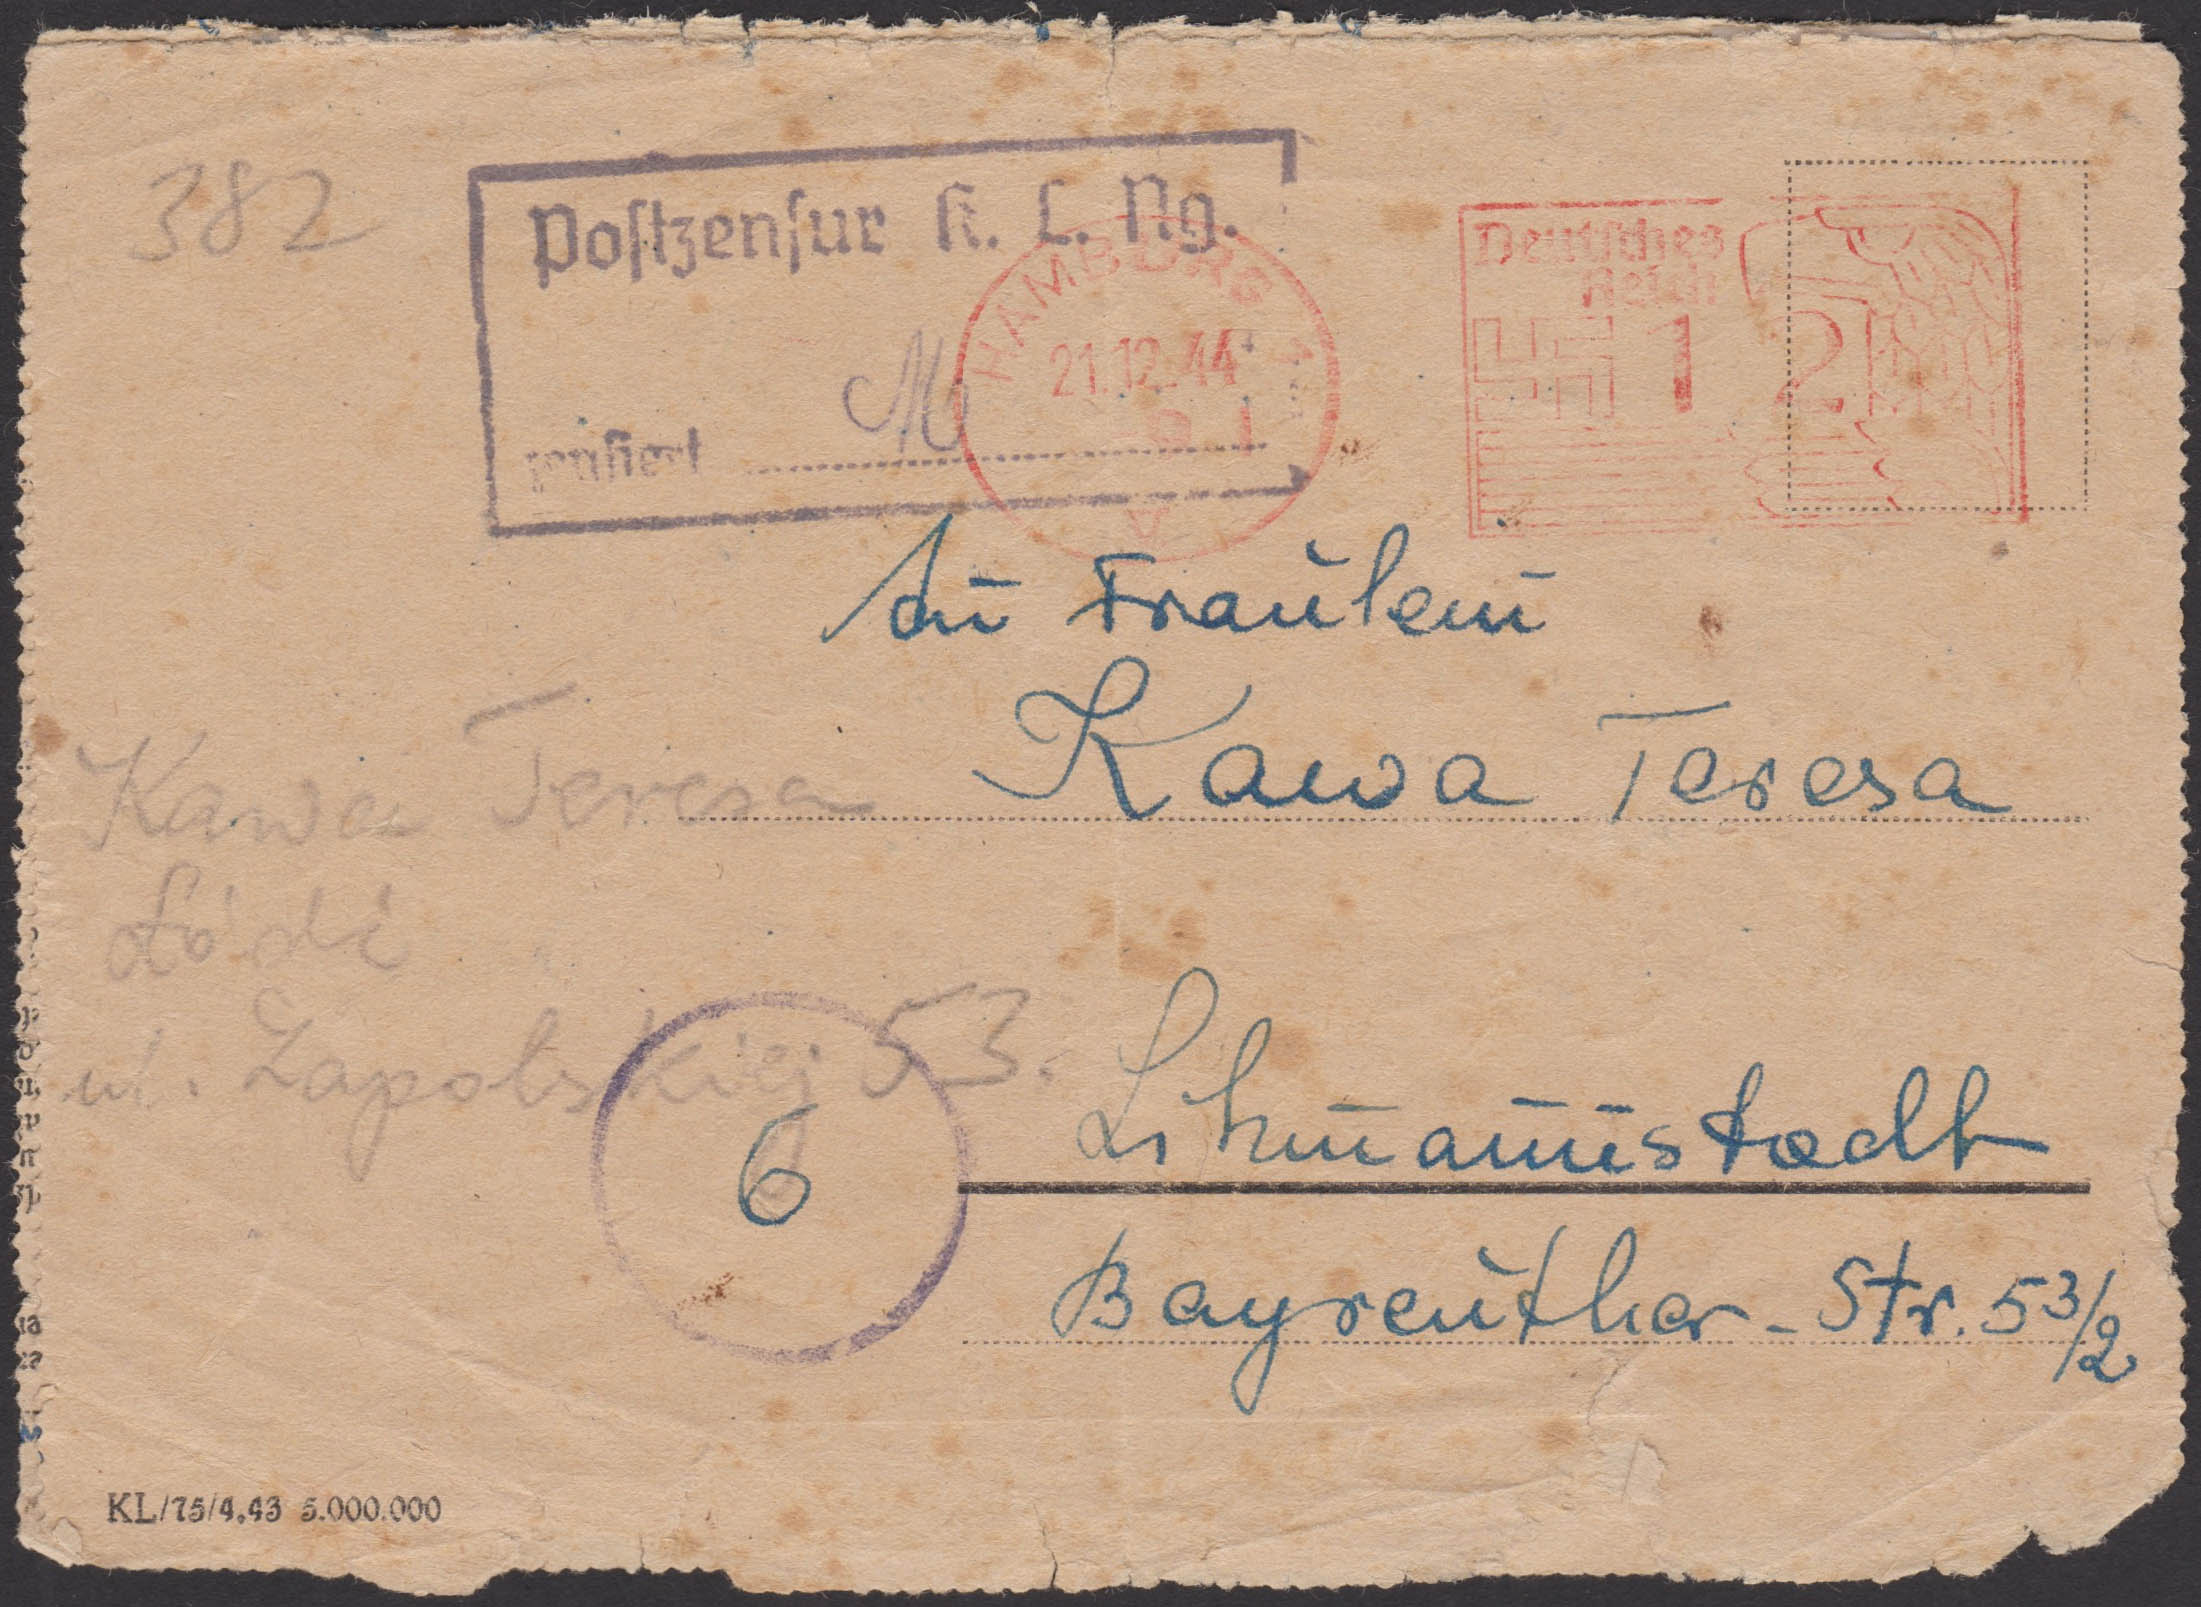 382
Postzensur K. L. Ng.
zensiert
HAMBURG 1
21.12.44
Deutsches
Reich
12
An Fräulein
Kawa Teresa
Kawa Teresa
Łódź
ul. Zapolskiej 53.
6
Litzmannstadt
Bayreuther-Str. 53/2
KL/75/4.43 5.000.000